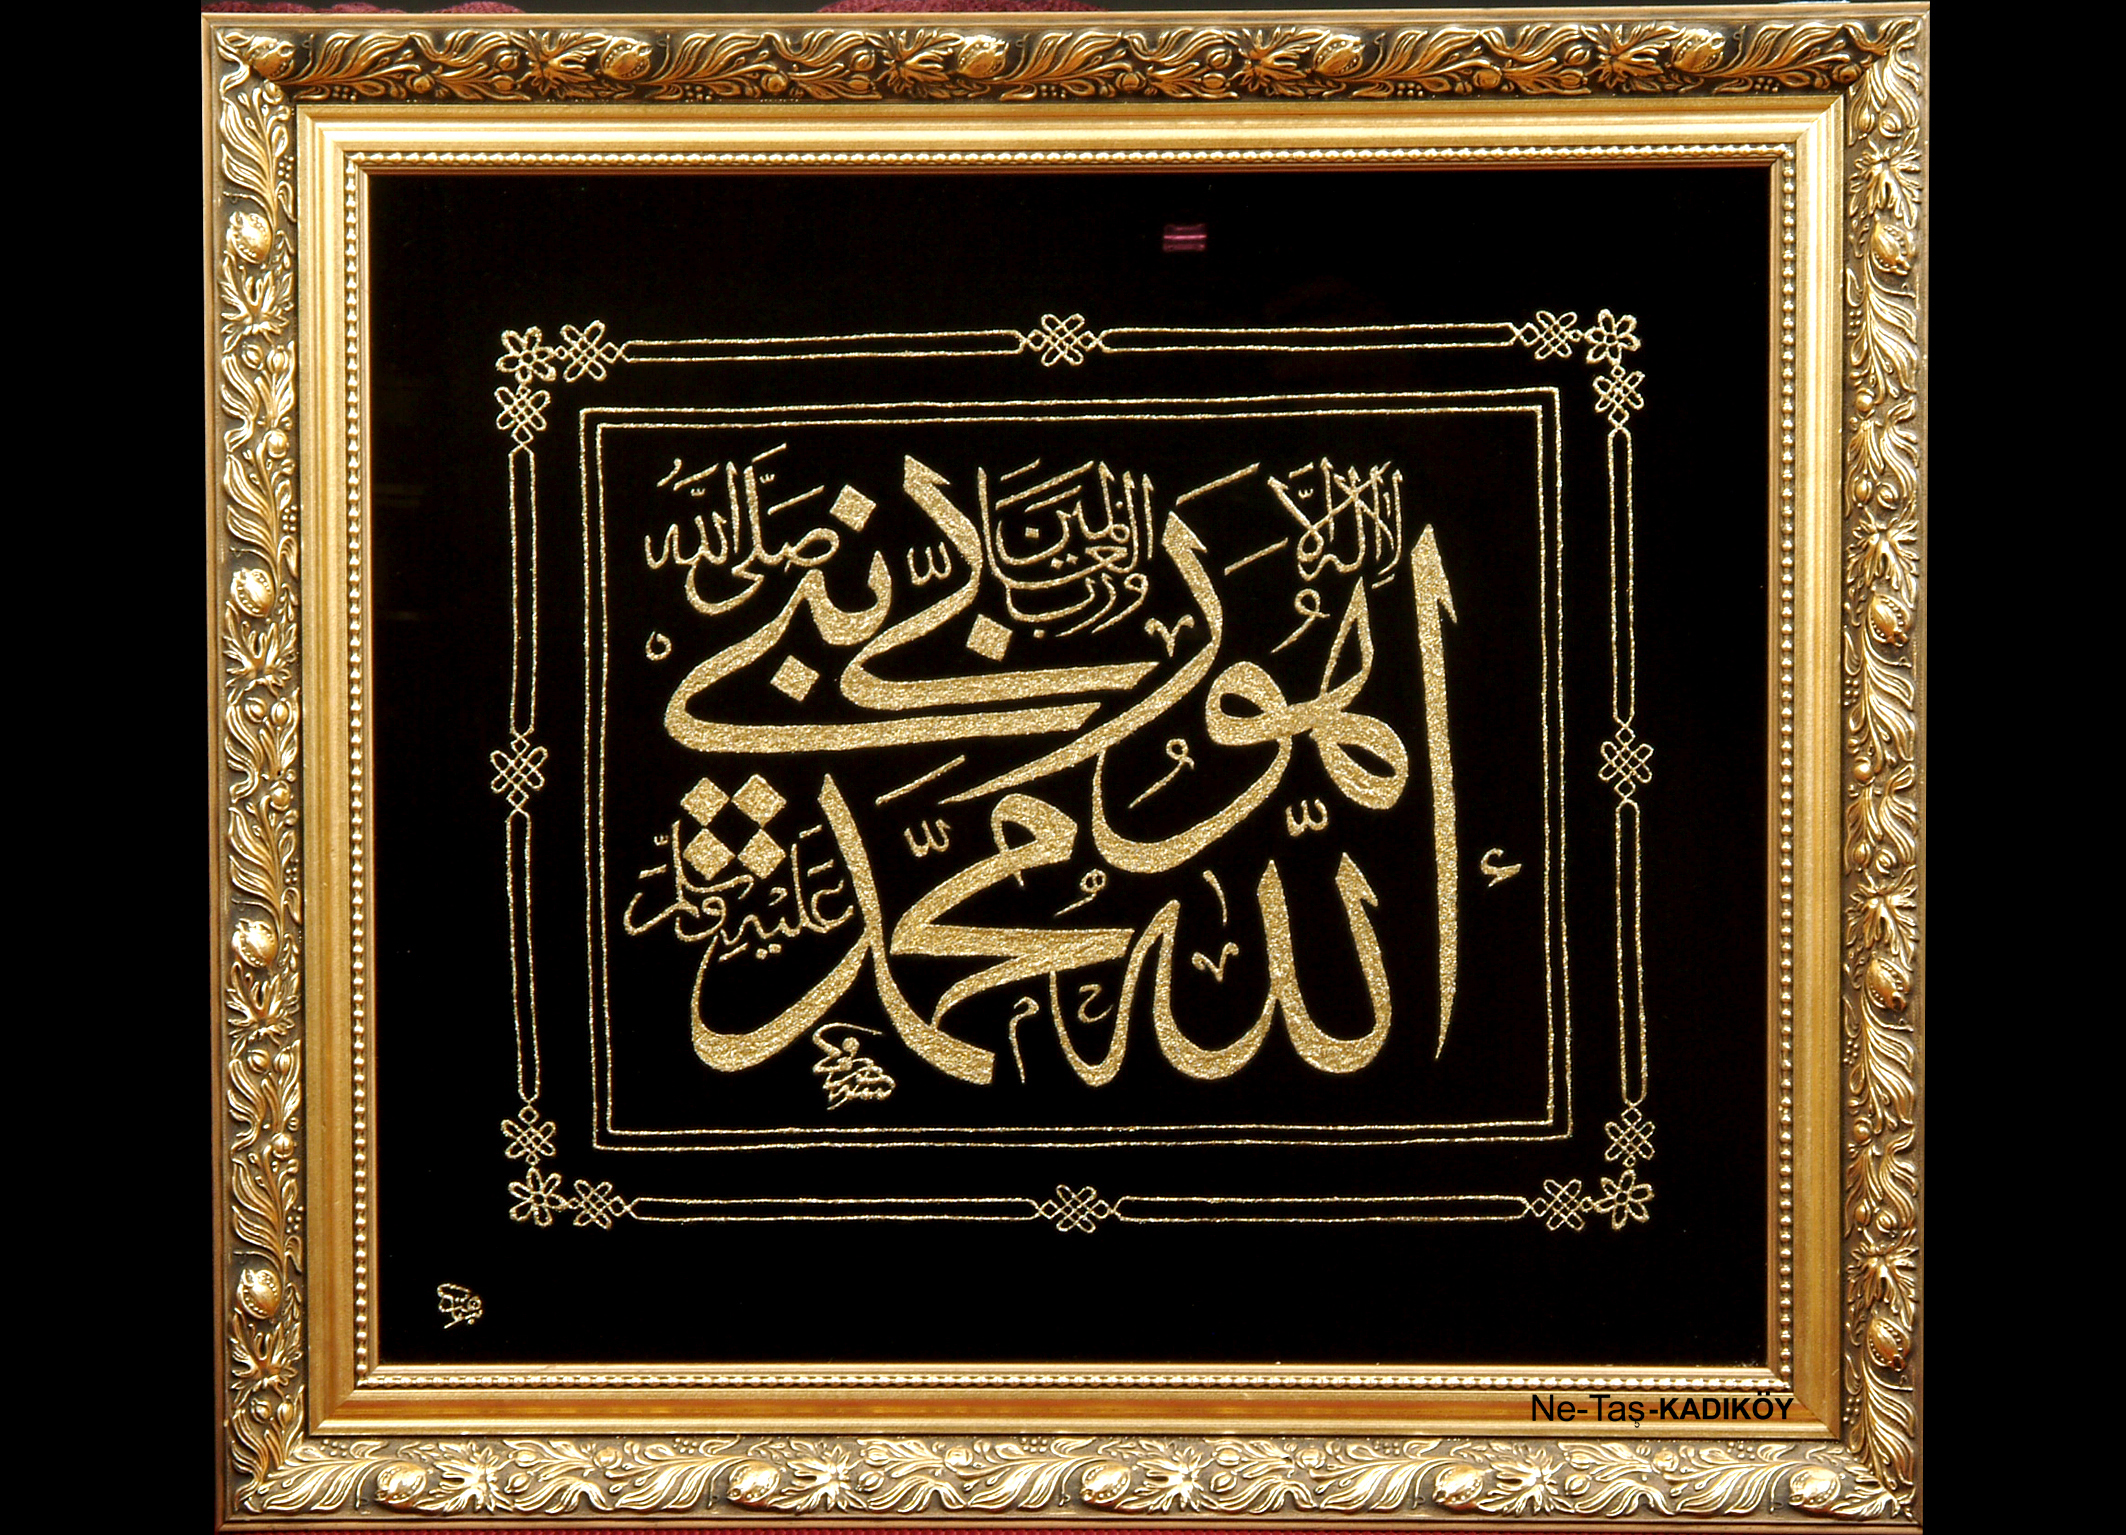 الله لا إله إلا هو
ربي ورب العالمين
محمد نبي
صلى الله
عليه وسلم
Ne-Taş-KADIKÖY